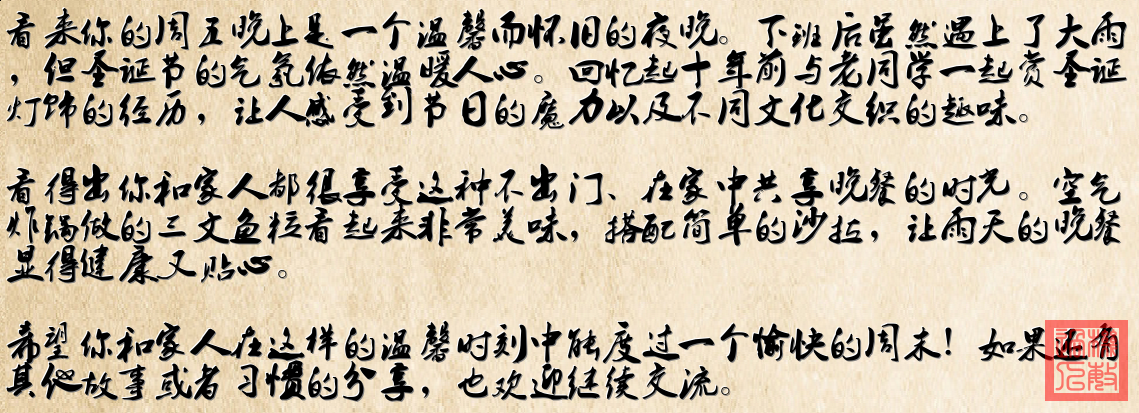 看来你的周五晚上是一个温馨而怀旧的夜晚。下班后虽然遇上了大雨
，但圣证节的气氛依然温暖人心。回忆起十年前与老同学一起赏圣证
灯饰的经历，让人感受到节日的魔力以及不同文化交织的趣味。
看得出你和家人都很享受这种不出门、在家中共享晚餐的时光。空气
炸锅做的三文鱼粒看起来非常美味，搭配简单的沙拉，让雨天的晚餐
显得健康又贴心。
希望你和家人在这样的温馨时刻中能度过一个愉快的周末！如果还有
其他故事或者习惯的分享，也欢迎继续交流。